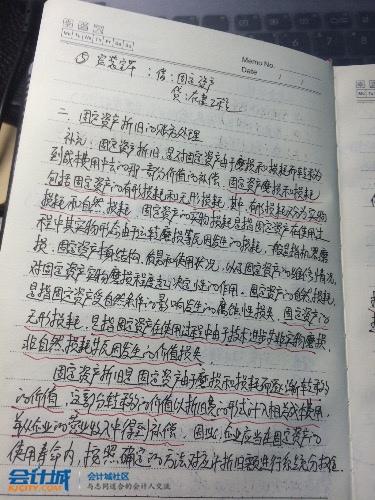 Mo Tu We Th Fr Sa Su
Memo No.
Date / /
⑤ 安装完毕：借：固定资产
贷：在建工程
二、固定资产折旧的账务处理
补充：固定资产折旧，是对固定资产由于磨损和损耗而转移
到成本费用中去的那一部分价值的补偿。固定资产磨损和损耗
包括固定资产的有形损耗和无形损耗。其中，有形损耗又分为实物
损耗和自然损耗。固定资产的实物损耗是指固定资产在使用过
程中其实物形态由于运转磨损等原因发生的损耗，一般是指机器磨
损。固定资产本身结构、质量和使用状况，以及固定资产的维修情况，
对固定资产实物磨损程度起决定性的作用。固定资产的自然损耗，
是指固定资产受自然条件的影响发生的腐蚀性损失。固定资产的
无形损耗，是指固定资产在使用过程中由于技术进步等非实物磨损、
非自然损耗等原因发生的价值损失
固定资产折旧是固定资产由于磨损和损耗而逐渐转移
的价值。这部分转移的价值以折旧费的形式计入相关成本费用，
并从企业的营业收入中得到补偿。因此，企业应当在固定资产的
使用寿命内，按照确定的方法对应计折旧额进行系统分摊。
会计城
会计城社区
KJCITY.COM
与志同道合的会计人交流